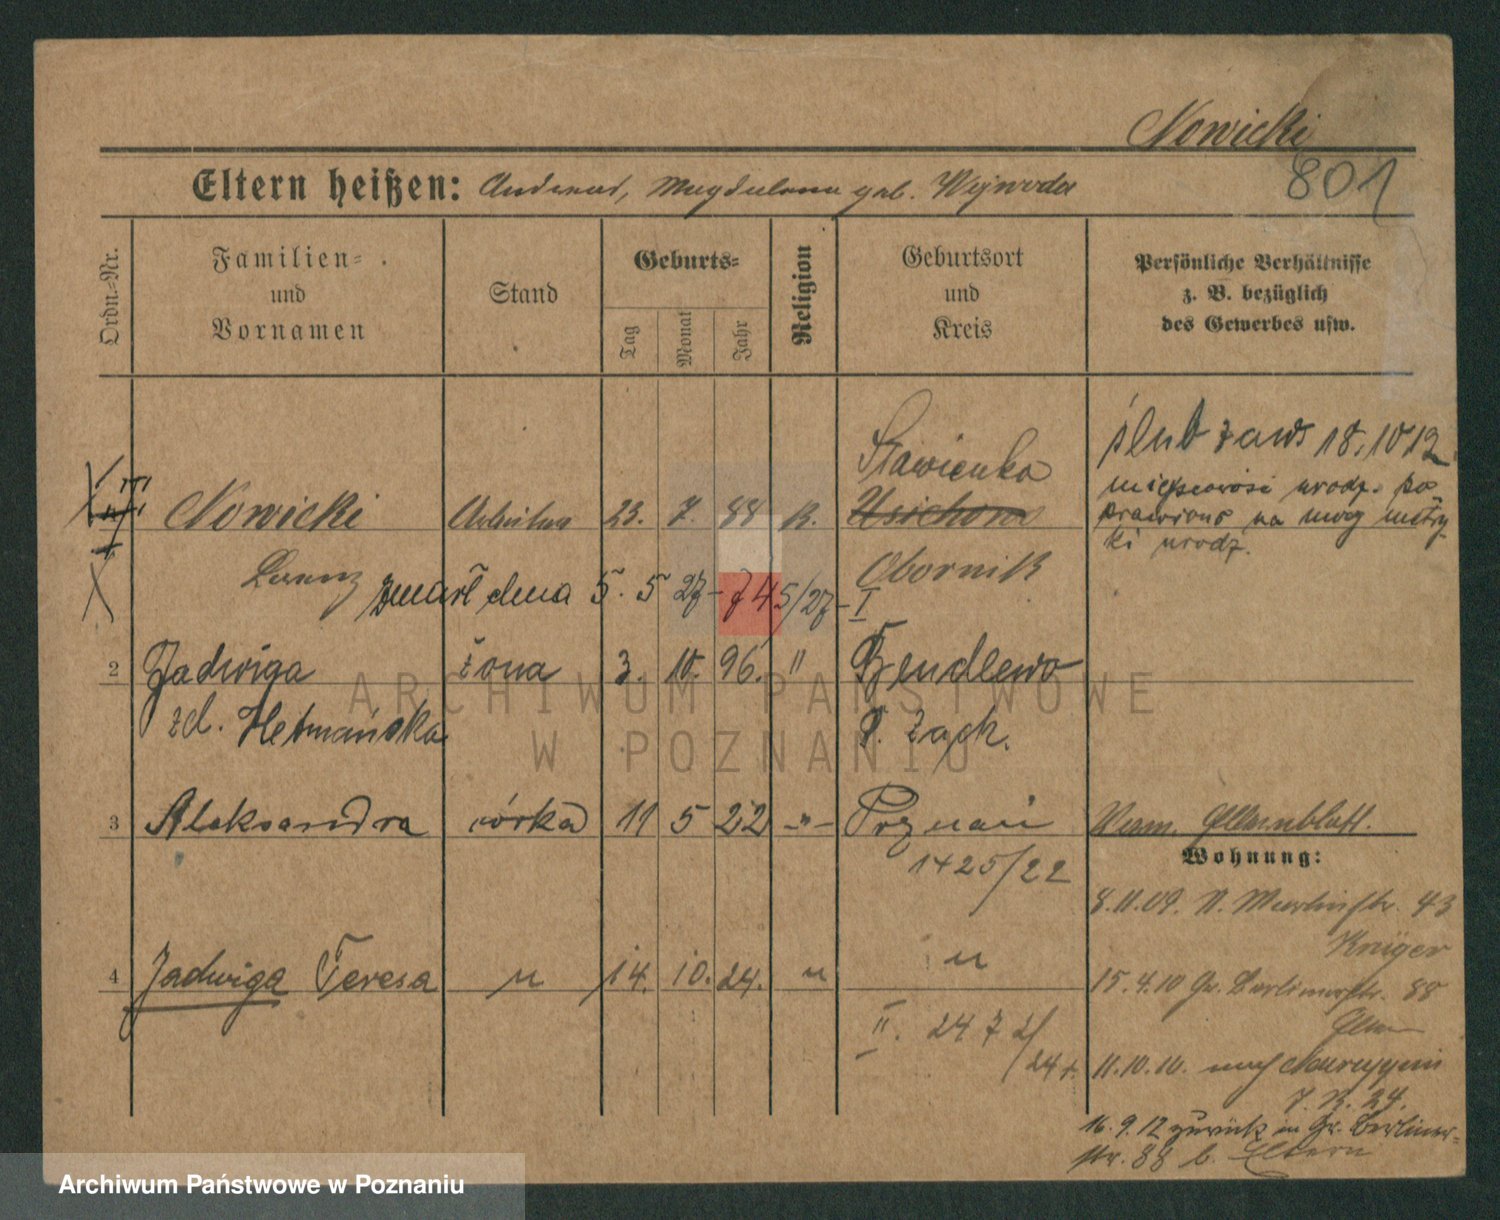 Nowicki
801
Eltern heißen: Andreas, Magdalena geb. Wojwoda
Ordn.-Nr.
Familien-
und
Vornamen
Stand
Geburts-
Tag
Monat
Jahr
Religion
Geburtsort
und
Kreis
Persönliche Verhältnisse
z. B. bezüglich
des Gewerbes usw.
ślub zaws 18.10 12
miejscowość urodz. po
prawiono na mocy metry
ki urodz.
Nowicki
23. 7. 88 K.
Sławienko
Usichowo
Lorenz
Obornik
zmarł dnia 5. 5 27 - 745/27 - I
2 Jadwiga żona 3. 10. 96. "
zd. Hetmańska
3 Aleksandra córka 11 5 22 - " - Poznań
1425/22
Elternblatt.
Wohnung:
8.11.09. N. Martinstr. 43
Krüger
4 Jadwiga Teresa " 14. 10. 24. " "
15.4.10 Gr. Berlinerstr. 88
Eltern
II. 2472/
24
11.10.10. nach Neuruppin
J. R. 24.
16.9.12 zurück n Gr. Berliner-
str. 88 b. Eltern
ARCHIWUM PAŃSTWOWE
W POZNANIU
Archiwum Państwowe w Poznaniu